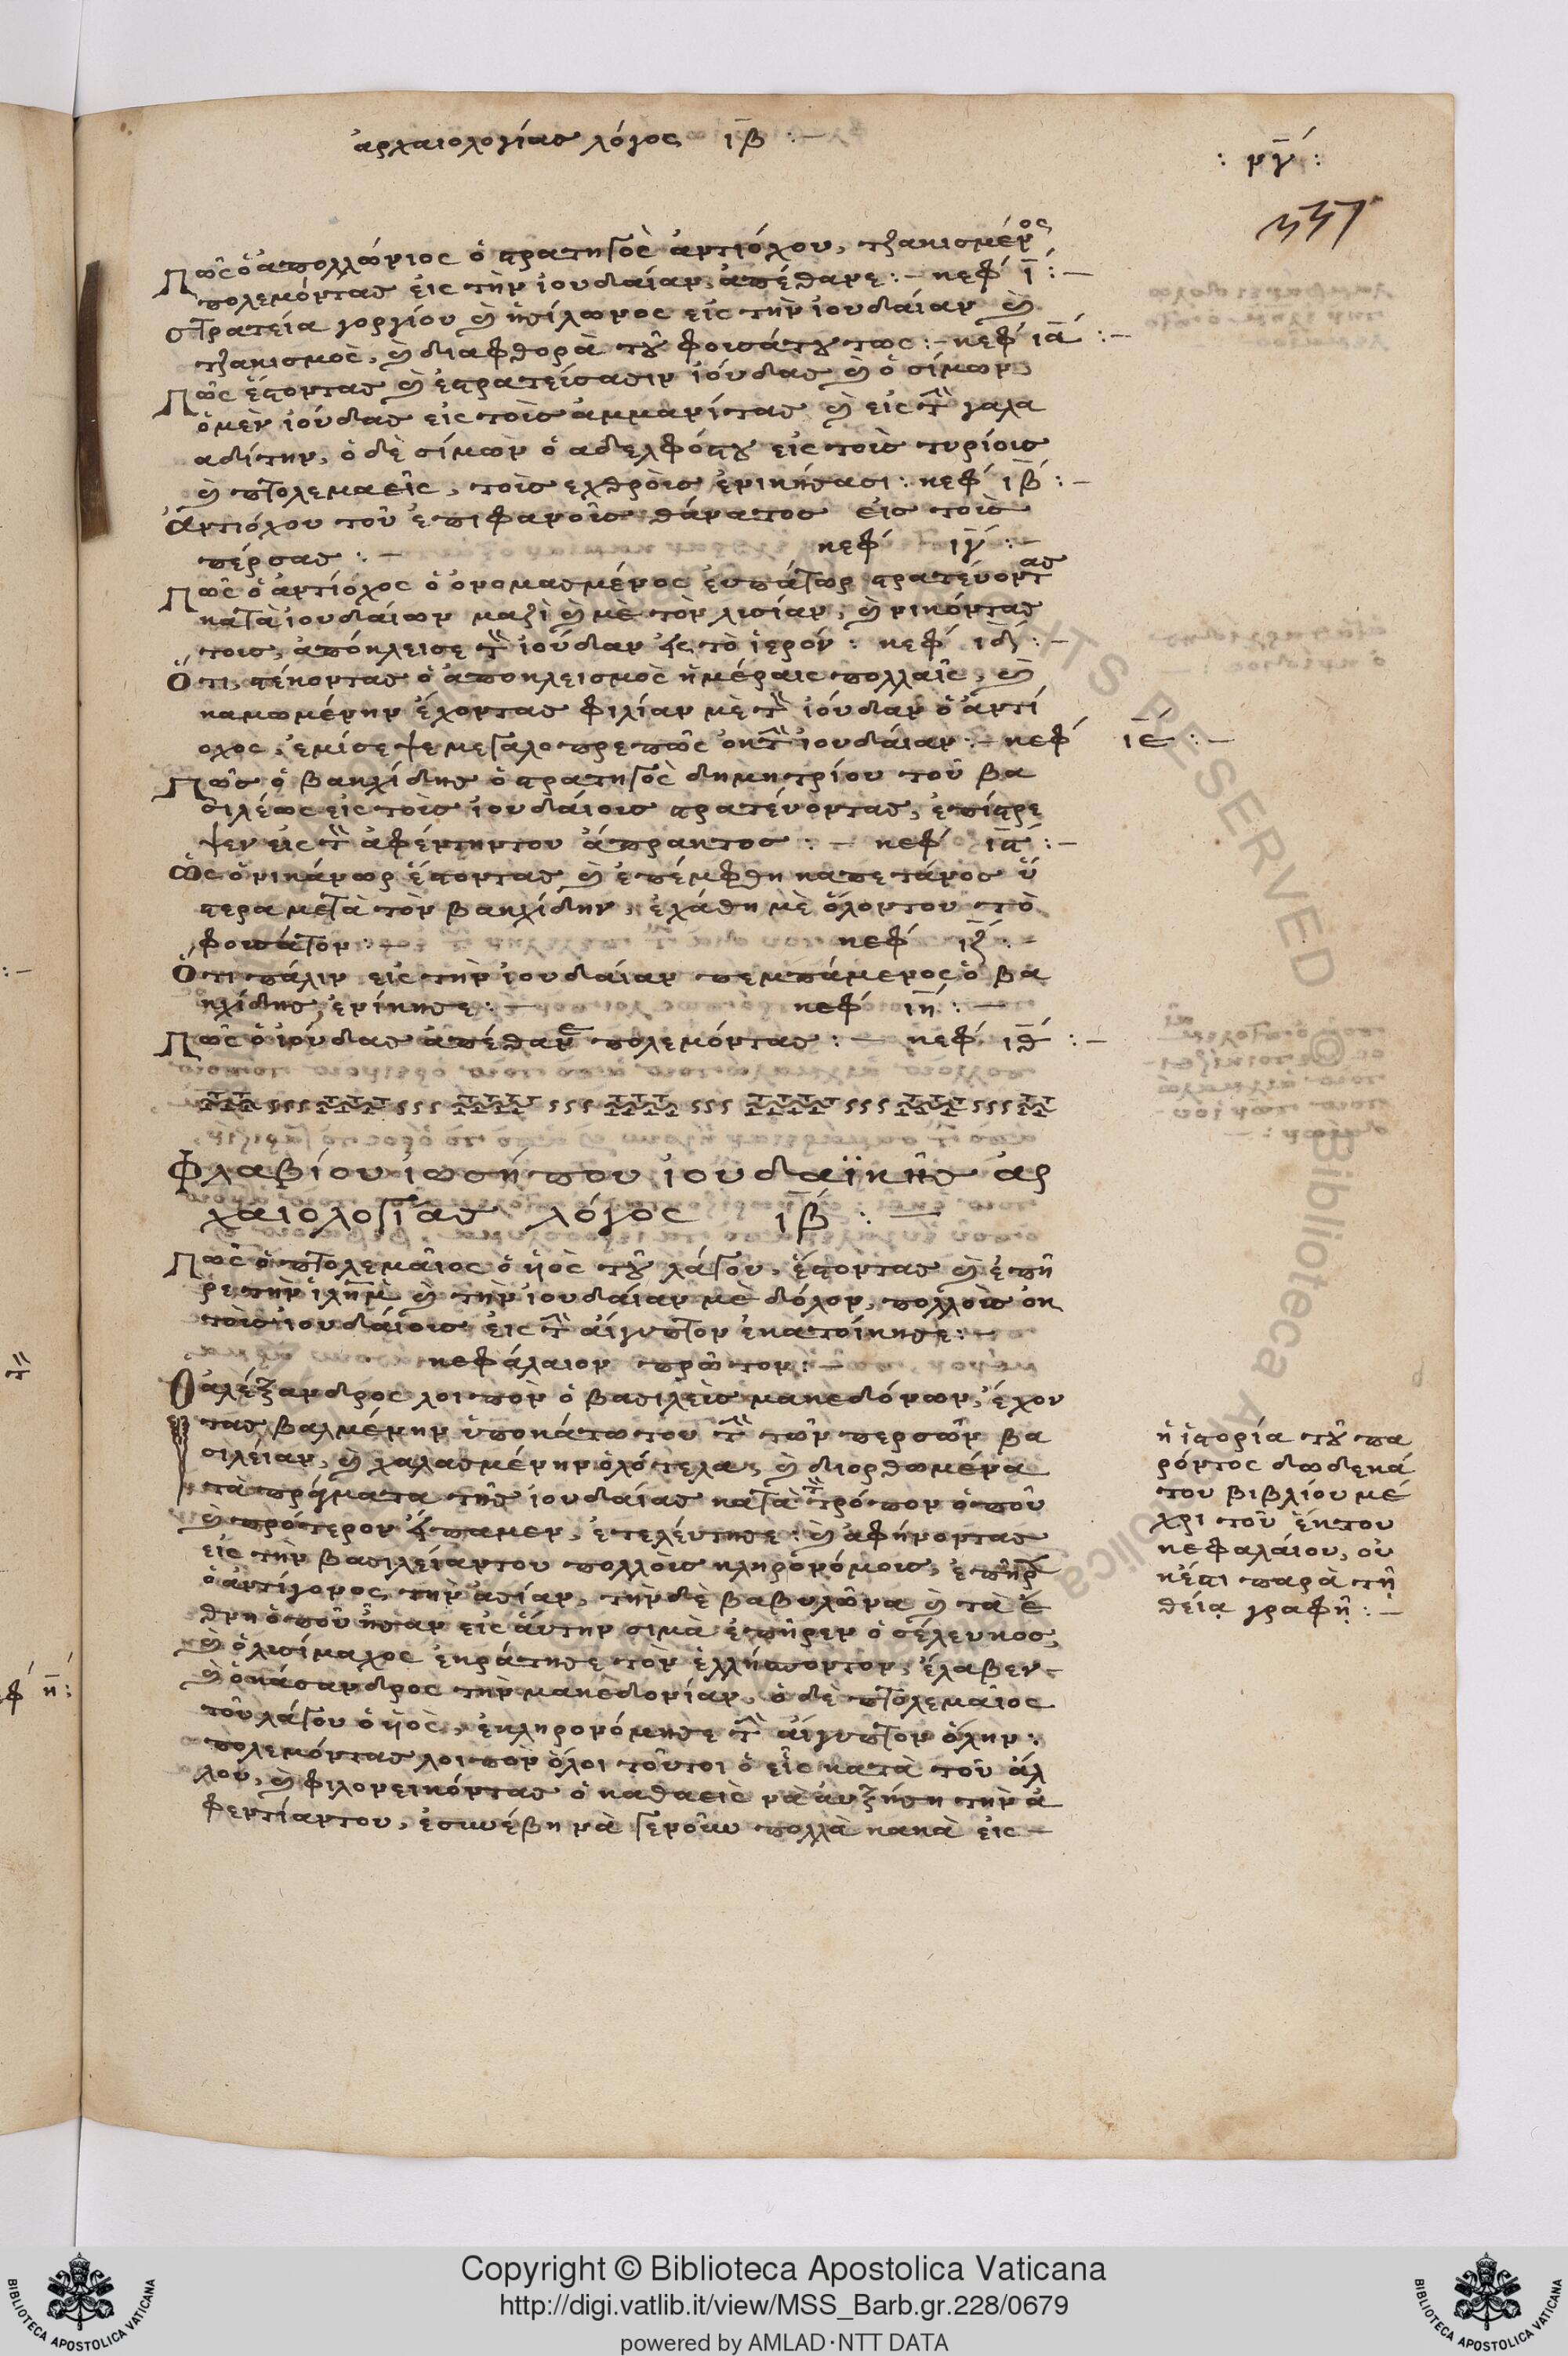 ἀρχαιολογίας λόγος ιβ :—
: ργ :
337
Πῶς ὁ ἀπολλώνιος ὁ στρατηγὸς ἀντιόχου, τζακισμένος
πολεμόντας εἰς τὴν ἰουδαίαν, ἀπέθανε :— κεφ ι :—
Στρατεία γοργίου καὶ ἡσίλωνος εἰς τὴν ἰουδαίαν καὶ
τζακισμὸς, καὶ διαφθορὰ τοῦ φουσάτου τως :— κεφ ια :—
Πῶς ἔστοντας καὶ ἐστρατείσασιν ἰούδας καὶ ὁ σίμων
ὁ μὲν ἰούδας εἰς τοὺς ἀμμανίτας καὶ εἰς τὴν γαλα
αδίτην, ὁ δὲ σίμων ὁ αδελφόςτου εἰς τοὺς τυρίους
καὶ πτολεμαεῖς, τοὺς εχθροὺς ἐνικήσασι : κεφ ιβ :—
Ἀντιόχου τοῦ ἐπιφανοῦς θάνατος εἰς τοὺς
πέρσας :— κεφ ιγ :—
Πῶς ὁ ἀντίοχος ὁ ονομασμένος ἐυπάτωρ στρατεύοντας
κατὰ ἰουδαίων μαζὶ καὶ μὲ τὸν λισίαν, καὶ νικόντας
τους, ἀπόκλεισε τὸν ἰούδαν εἰς τὸ ἱερόν : κεφ ιδ :—
Ὅτι, στέκοντας ὁ ἀποκλεισμὸς ἡμέραις πολλαῖς, καὶ
καμωμένην ἔχοντας φιλίαν μὲ τὸν ἰούδαν ὁ ἀντί
οχος, ἐμίσεψε μεγαλοπρεπῶς ὀκ τὴν ἰουδαίαν :— κεφ ιε :—
Πῶς ὁ βακχίδης ὁ στρατηγὸς δημητρίου τοῦ βα
σιλέως εἰς τοὺς ἰουδαίους στρατεύοντας, ἐπίστρε
ψεν εἰς τὸν ἀφέντηντου ἄπρακτος :— κεφ ις :—
Ὡς ὁ νικάνωρ ἔστοντας καὶ ἐπέμφθη καπετάνος ὕ
στερα μετὰ τὸν βακχίδην, ἐχάθη μὲ ὅλοντου τὸ
φουσάτον :— κεφ ιζ :—
Ὅτι πάλιν εἰς τὴν ἰουδαίαν πεμπάμενος ὁ βα
κχίδης, ἐνίκησε :— κεφ ιη :—
Πῶς ὁ ἰούδας ἀπέθανε πολεμόντας :— κεφ ιθ :—
Φλαβίου ἰωσήπου ἰουδαϊκῆς ἀρ
χαιολογίας λόγος ιβ :—
Πῶς ὁ πτολεμαῖος ὁ ὑιὸς τοῦ λάγου, ἔστοντας καὶ ἐπῆ
ρε τὴν ἱλημ καὶ τὴν ἰουδαίαν μὲ δόλον, πολλοὺς ὀκ
τοὺς ἰουδαίους εἰς τὴν αἴγυπτον ἐκατοίκησε :—
κεφάλαιον πρῶτον :—
Ὁ ἀλέξανδρος λοιπὸν ὁ βασιλεὺς μακεδόνων, ἔχον
τας βαλμένην ὑποκάτωτου τὴν τῶν περσῶν βα
σιλείαν, καὶ χαλασμένην ὁλότελα, καὶ διορθωμένα
τὰ πράγματα τῆς ἰουδαίας κατὰ τὸν τρόπον ὁποῦ
καὶ πρότερον εἴπαμεν, ἐτελεύτησε : καὶ ἀφήνοντας
εἰς τὴν βασιλείαντου πολλοὺς κληρονόμους, ἐπῆρε
ὁ ἀντίγονος τὴν ἀσίαν, τὴν δὲ βαβυλῶνα καὶ τὰ ἔ
θνη ὁποῦ ἦσαν εἰς ἀύτην σιμὰ ἐπῆρεν ὁ σέλευκος,
καὶ ὁ λισίμαχος ἐκράτησε τὸν ἑλλήσποντον, ἔλαβεν
καὶ ὁ κάσανδρος τὴν μακεδονίαν, ὁ δὲ πτολεμαῖος
τοῦ λάγου ὁ ὑιὸς, ἐκληρονόμησε τὴν αἴγυπτον ὅλην :
πολεμόντας λοιπὸν ὅλοι τοῦτοι ὁ εἷς κατὰ τοῦ ἄλ
λου, καὶ φιλονεικόντας ὁ καθαεὶς νὰ ἀυξήση τὴν ἀ
φεντίαντου, ἐσυνέβη νὰ γενοῦν πολλὰ κακὰ εἰς —
ἡ ἱστορία τοῦ πα
ρόντος δωδεκά
του βιβλίου μέ
χρι τοῦ ἕκτου
κεφαλαίου, οὐ
κέστι παρὰ τῆ
θεία γραφῆ :—
ALL RIGHTS RESERVED © Biblioteca Apostolica
Copyright © Biblioteca Apostolica Vaticana
http://digi.vatlib.it/view/MSS_Barb.gr.228/0679
powered by AMLAD·NTT DATA
BIBLIOTECA APOSTOLICA VATICANA
BIBLIOTECA APOSTOLICA VATICANA